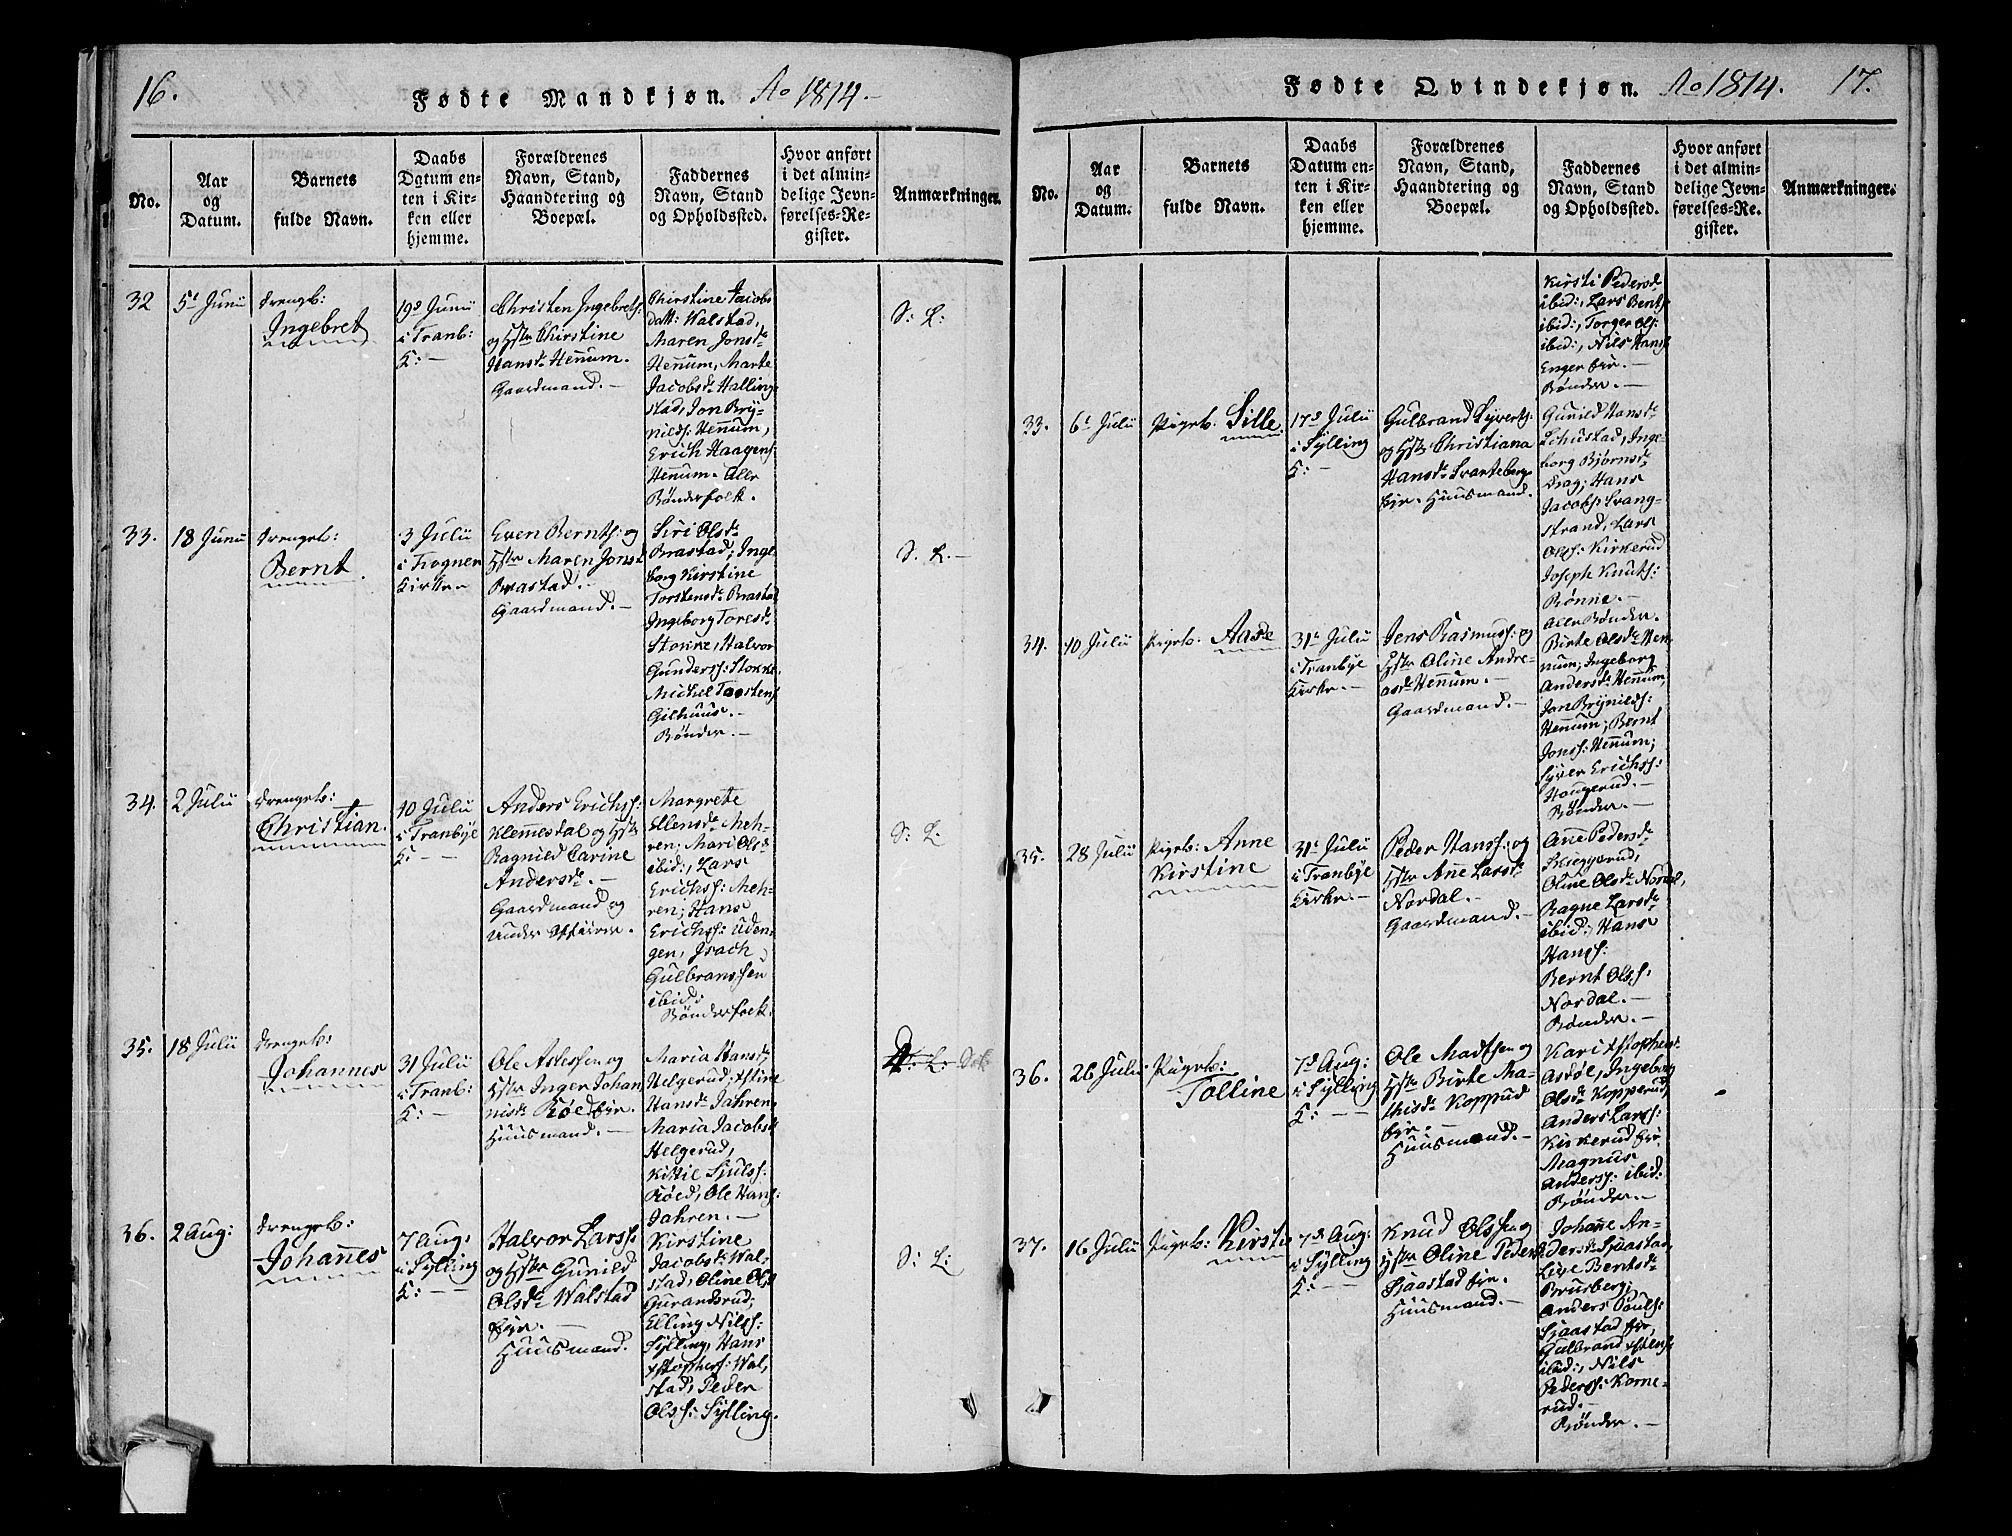 16.
Fødte Mandkjøn. Ao 1814.-
No.
Aar
og
Datum.
Barnets
fulde Navn.
Daabs
Datum en-
ten i Kir-
ken eller
hjemme.
Forældrenes
Navn, Stand,
Haandtering og
Boepæl.
Faddernes
Navn, Stand
og Opholdssted.
Hvor anført
i det almin-
delige Jevn-
førelses-Re-
gister.
Anmærkninger.
32
5t Junii
Drengeb:
Ingebret
19d Junii
i Tranb:
K: —
Christen Ingebrets:
og Hstr Chirstine
Hansdr Hen̄um.
Gaardmand. —
Chirstine Jacobs
datt: Walstad,
Maren Jonsdr
Hen̄um, Marte
Jacobsdr Halling-
stad, Jon Bry-
nilds: Hen̄um,
Erich Haagens:
Hen̄um. Alle
Bønderfolk.
D: L:
33.
18 Junii
Drengeb:
Bernt
3 Julii
i Frogner
Kirke
Even Bernts: og
Hstr Maren Jonsd
Brastad. —
Gaardmand. —
Siri Olsdr
Brastad; Inge
borg Kirstine
Torstensdr Brastad
Ingeborg Toresdr
Stokke, Halvor
Gunders: Stokke
Michel Torstens:
Gilhuus. —
Bønder. —
D. L. —
34.
2 Julii
Drengeb:
Christian.
10 Julii
i Tranbye
K: — —
Anders Erichs:
Klem̄esdal og Hstr
Ragnild Carine
Andersdr. —
Gaardmand og
Under Officier.
Margrete
Ellensdr Meh-
ren; Mari Olsdr
ibid:, Lars
Erichss: Meh-
ren; Hans
Erichss: Uden-
gen, Isach
Gulbranssen
ibid:
Bønderfolk.
D: L:
35.
18 Julii
Drengeb:
Johannes
31 Julii
i Tranb:
K: —
Ole Aslessen og
Hstr Inger Johan
nisdr Røed Eje.
Huusmand. —
Maria Hansdr
Helgerud; Xstine
Hansdr Jahren.
Maria Jacobsd
Helgerud,
Kittil Sjulss:
Røed, Ole Hans:
Jahren. —
L:
36.
2 Aug:
Drengeb:
Johan̄es
7 Aug:
i Sylling
K: — —
Halvor Larss:
og Hstr Gunild
Olsdr Walstad
Eje. —
Huusmand.
Kirstine
Jacobsdr Wal-
stad, Oline Ols
Gurandsrud;
Elling Nilss:
Sylling, Hans
Xstophers: Wal-
stad, Peder
Olss: Sylling.
D: L:
Fødte Qvindekjøn. Ao 1814. 17.
No.
Aar
og
Datum.
Barnets
fulde Navn.
Daabs
Datum en-
ten i Kir-
ken eller
hjemme.
Forældrenes
Navn, Stand,
Haandtering og
Boepæl.
Faddernes
Navn, Stand
og Opholdssted.
Hvor anført
i det almin-
delige Jevn-
førelses-Re-
gister.
Anmærkninger.
Kirsti Pedersdr
ibid:, Lars Bents:
ibid:, Torger Ols:
ibid:, Nils Hans:
Enger Eje. —
Bønder. —
33.
6t Julii
Pigeb. Sille.
17d Julii
i Sylling
K: —
Gulbrand Syverts:
og Hstr Christiana
Hansdr Svartebergs
Eje. Huusmand.
Gunild Hansdr
Schustad, Inge-
borg Bjørnsdr
Drag; Hans
Jacobs: Svang-
strand, Lars
Olss: Kirkerud
Joseph Knuts:
Rønne. —
Alle Bønder.
34.
10 Julii
Pigeb. Aase
31t Julii
i Tranbye
Kirke. —
Jens Rasmuss: og
Hstr Oline Andre-
asdr Hen̄um. —
Gaardmand. —
Birte Olsdr Hen-
num; Ingeborg
Andersdr Hen̄um,
Jan Brynilds:
Hen̄um; Bernt
Jonss: Hen̄um;
Syver Erichss:
Haugerud. —
Bønder. —
35.
28 Julii
Pigeb: Anne
Kirstine
31t Julii
i Tranbye
Kirke. —
Peder Hans: og
Hstr An̄e Larsdr
Nordal. —
Gaardmand. —
An̄e Pedersdr
Skreggerud,
Oline Olsdr Nordal,
Ragne Larsdr
ibid:, Hans
Hans:
Bernt Olss:
Nordal. —
Bønder. —
36.
26 Julii
Pigeb:
Tolline
7d Aug:
i Sylling
K: — —
Ole Madtsen og
Hstr Birte Ma-
thisdr Koppud
Eje. —
Huusmand. —
Kari Xstophersdr
Asdøl, Ingeborg
Olsdr Kopperud,
Anders Larss:
Kirkerud Eje,
Magnus
Anderss: ibid:
Bønder. —
37.
16 Julii
Pigeb: Kirsti
7d Aug:
i Sylling
K: —
Knud Olsen og
Hstr Oline Pedersd
Sjaastad Eje.
Huusmand. —
Johan̄e An-
dersdr Sjaastad,
Live Bentsdr
Bruberg;
Anders Pouls:
Sjaastad Eje,
Gulbrand Xstens:
ibid:, Nils
Pederss: Korne-
rud. —
Bønder. —